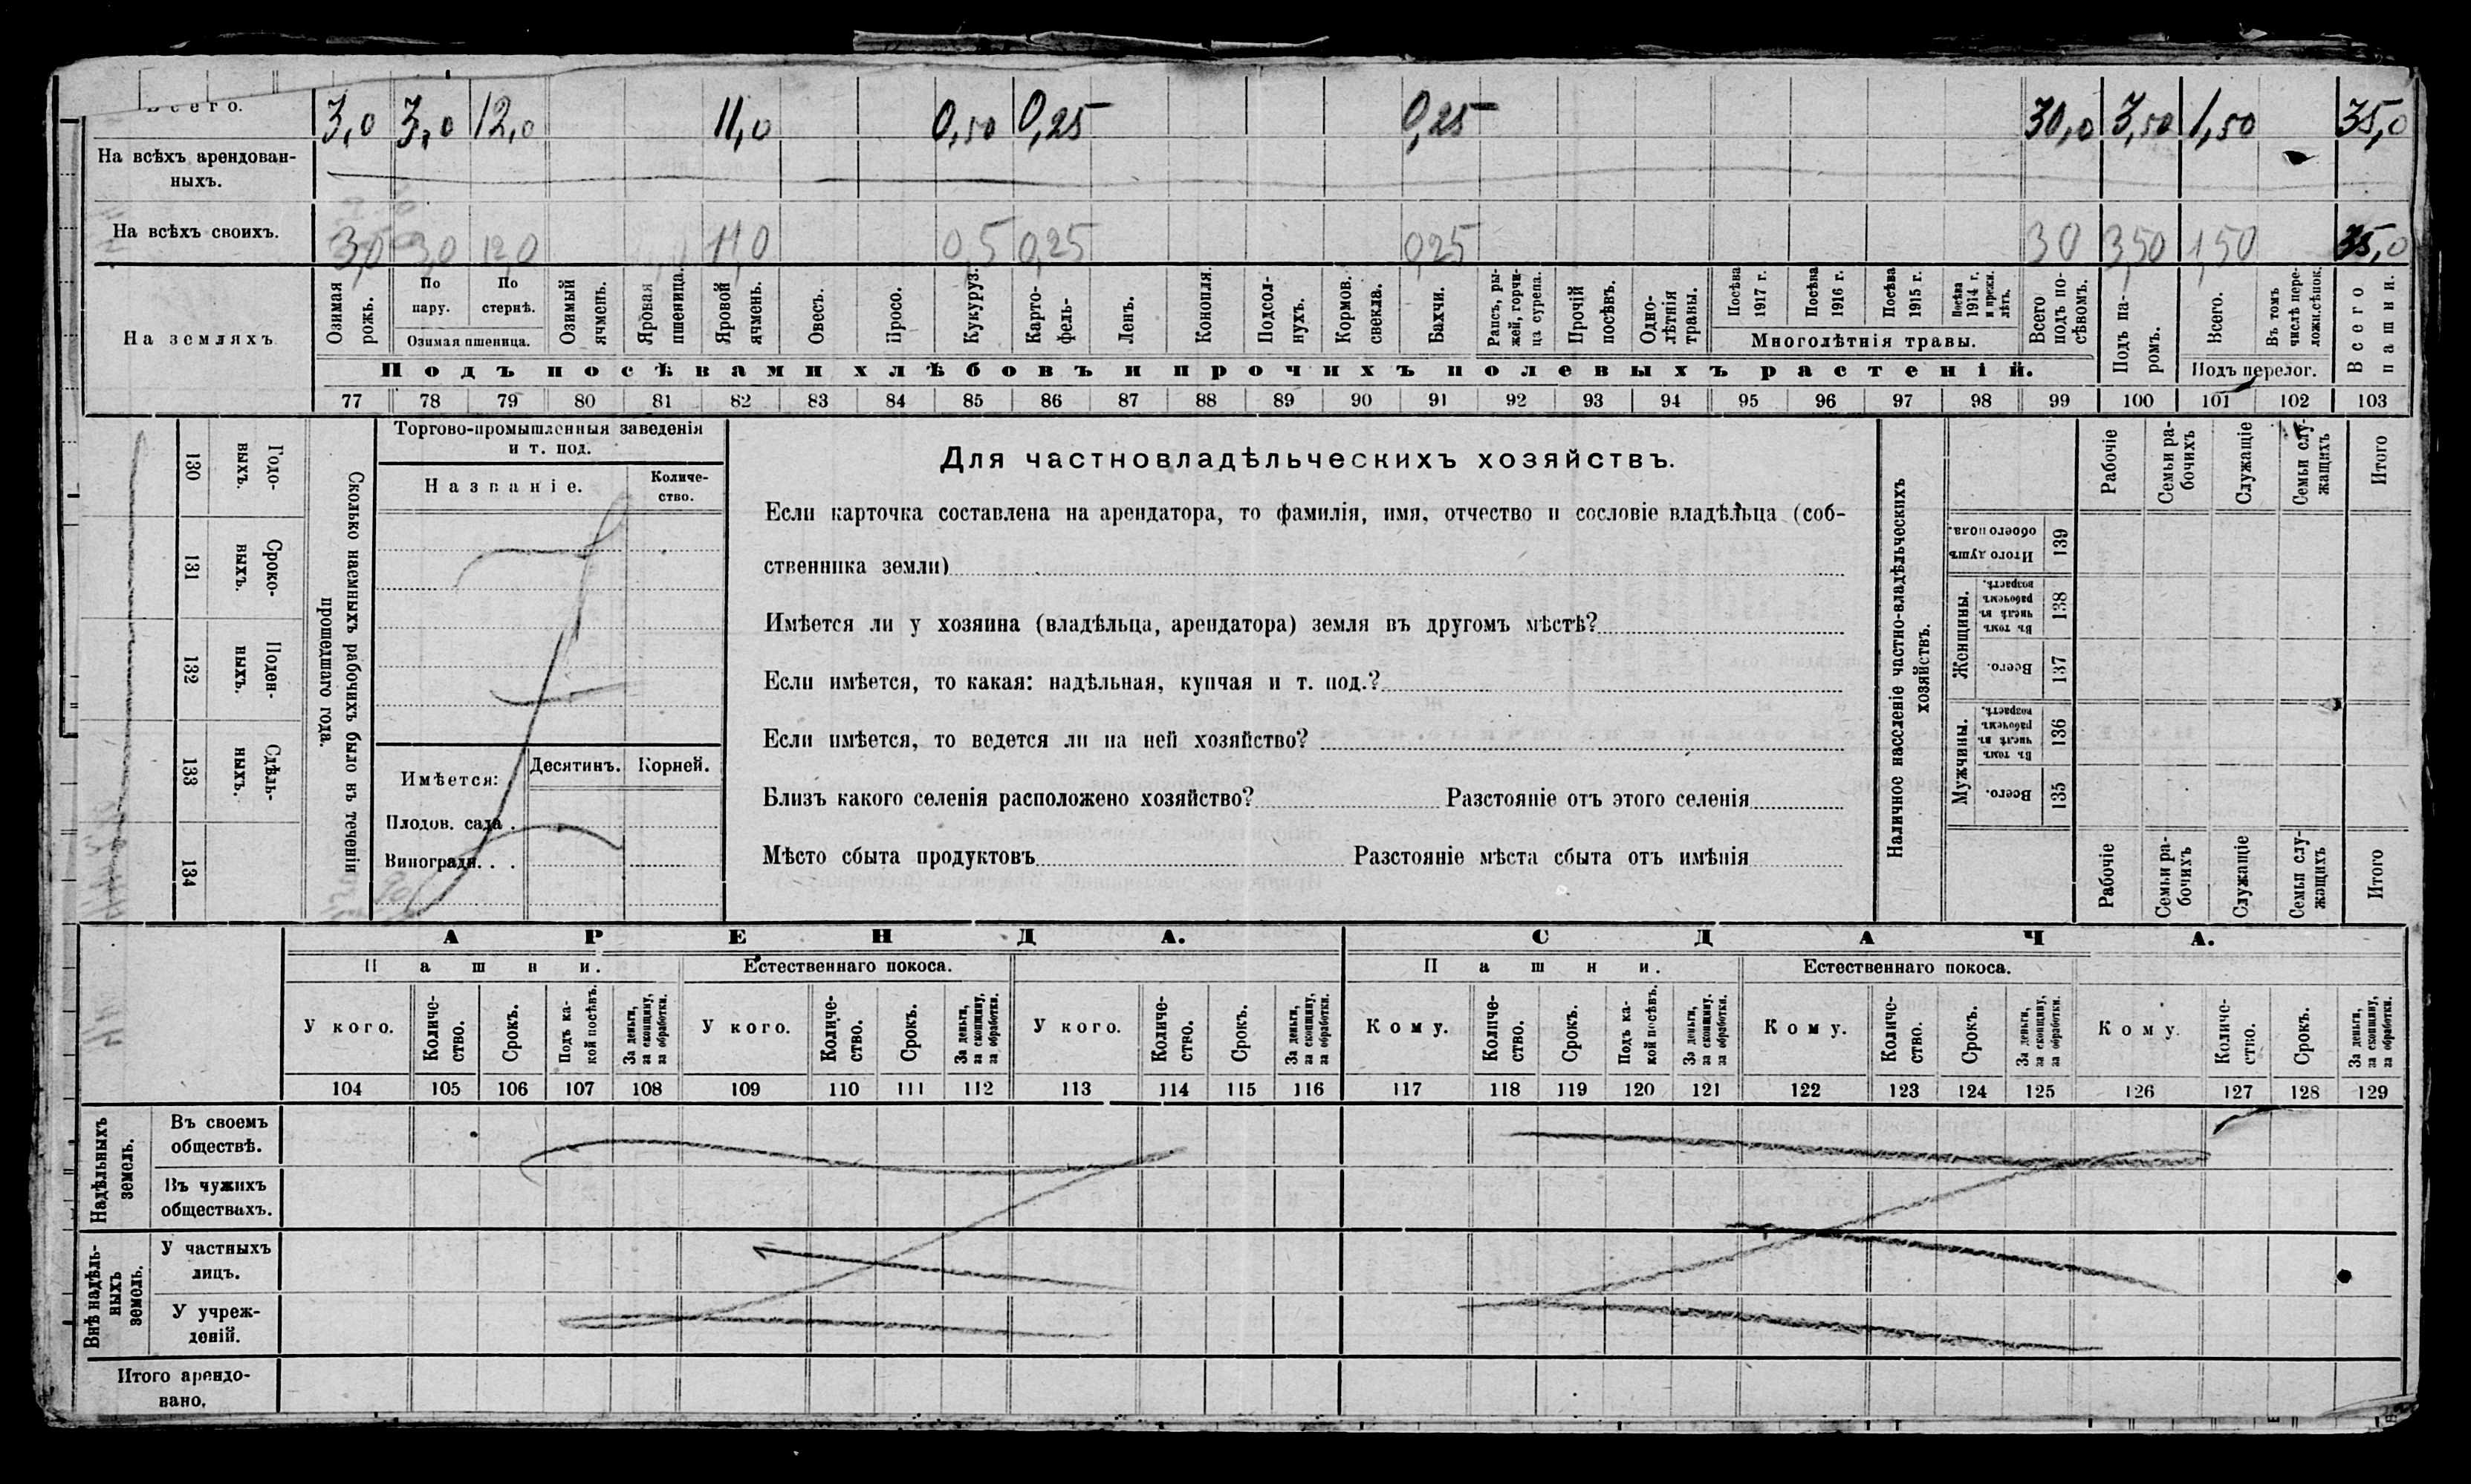 Всего. 3,0 3,0 12,0 11,0 0,50 0,25 0,25 30,0 3,50 1,50 35,0
На всѣхъ арендован-
ныхъ.
На всѣхъ своихъ. 3,0 3,0 12,0 11,0 0,5 0,25 0,25 30 3,50 1,50 35,0
На земляхъ
Озимая рожь.
По пару.
По стернѣ.
Озимая пшеница.
Озимый ячмень.
Яровая пшеница.
Яровой ячмень.
Овесъ.
Просо.
Кукуруз.
Карто-
фель-
Ленъ.
Конопля.
Подсол-
нухъ.
Кормов. свекла.
Бахчи.
Рапсъ, ры-
жей, горчи-
ца сурепа.
Прочій посѣвъ.
Одно-
лѣтнія травы.
Посѣва 1917 г.
Посѣва 1916 г.
Посѣва 1915 г.
Посѣва 1914 г. и прежн. лѣтъ.
Многолѣтнія травы.
Всего подъ по-
сѣвомъ.
Подъ па-
ромъ.
Всего.
Въ томъ числѣ пере-
ложн.сѣнок.
Подъ перелог.
Всего пашни.
Подъ посѣвами хлѣбовъ и прочихъ полевыхъ растеній.
77 78 79 80 81 82 83 84 85 86 87 88 89 90 91 92 93 94 95 96 97 98 99 100 101 102 103
Годо-
выхъ.
130
Сроко-
выхъ.
131
Поден-
ныхъ.
132
Сдѣль-
ныхъ.
133
134
Сколько наемныхъ рабочихъ было въ теченіи
прошедшаго года.
Торгово-промышленныя заведенія
и т. под.
Названіе.
Количе-
ство.
Имѣется:
Десятинъ. Корней.
Плодов. сада .
Виноградн. . .
Для частновладѣльческихъ хозяйствъ.
Если карточка составлена на арендатора, то фамилія, имя, отчество и сословіе владѣльца (соб-
ственника земли)
Имѣется ли у хозяина (владѣльца, арендатора) земля въ другомъ мѣстѣ?
Если имѣется, то какая: надѣльная, купчая и т. под.?
Если имѣется, то ведется ли на ней хозяйство?
Близъ какого селенія расположено хозяйство? Разстояніе отъ этого селенія
Мѣсто сбыта продуктовъ Разстояніе мѣста сбыта отъ имѣнія
Наличное населеніе частно-владѣльческихъ
хозяйствъ.
Рабочіе
Семьи ра-
бочихъ
Служащіе
Семьи слу-
жащихъ
Итого
Итого душъ
обоего пола.
139
Женщины.
Въ томъ числѣ въ рабочемъ возрастѣ.
138
Всего.
137
Мужчины.
Въ томъ числѣ въ рабочемъ возрастѣ.
136
Всего.
135
Рабочіе
Семьи ра-
бочихъ
Служащіе
Семьи слу-
жащихъ
Итого
АРЕНДА. СДАЧА.
Пашни. Естественнаго покоса. Пашни. Естественнаго покоса.
У кого.
Количе-
ство.
Срокъ.
Подъ ка-
кой посѣвъ.
За деньги, за скопщину, за обработки.
У кого.
Количе-
ство.
Срокъ.
За деньги, за скопщину, за обработки.
У кого.
Количе-
ство.
Срокъ.
За деньги, за скопщину, за обработки.
Кому.
Количе-
ство.
Срокъ.
Подъ ка-
кой посѣвъ.
За деньги, за скопщину, за обработки.
Кому.
Количе-
ство.
Срокъ.
За деньги, за скопщину, за обработки.
Кому.
Количе-
ство.
Срокъ.
За деньги, за скопщину, за обработки.
104 105 106 107 108 109 110 111 112 113 114 115 116 117 118 119 120 121 122 123 124 125 126 127 128 129
Надѣльныхъ
земель.
Въ своемъ
обществѣ.
Въ чужихъ
обществахъ.
Внѣ надѣль-
ныхъ
земель.
У частныхъ
лицъ.
У учреж-
деній.
Итого арендо-
вано.